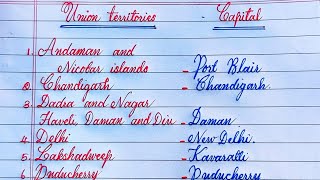 Union territories Capital
1. Andaman and
Nicobar islands - Port Blair
2. Chandigarh - Chandigarh.
3. Dadra and Nagar
Haveli Daman and Diu - Daman
4. Delhi - New Delhi.
5. Lakshadweep - Kavaratti
6. Puducherry - Puducherry